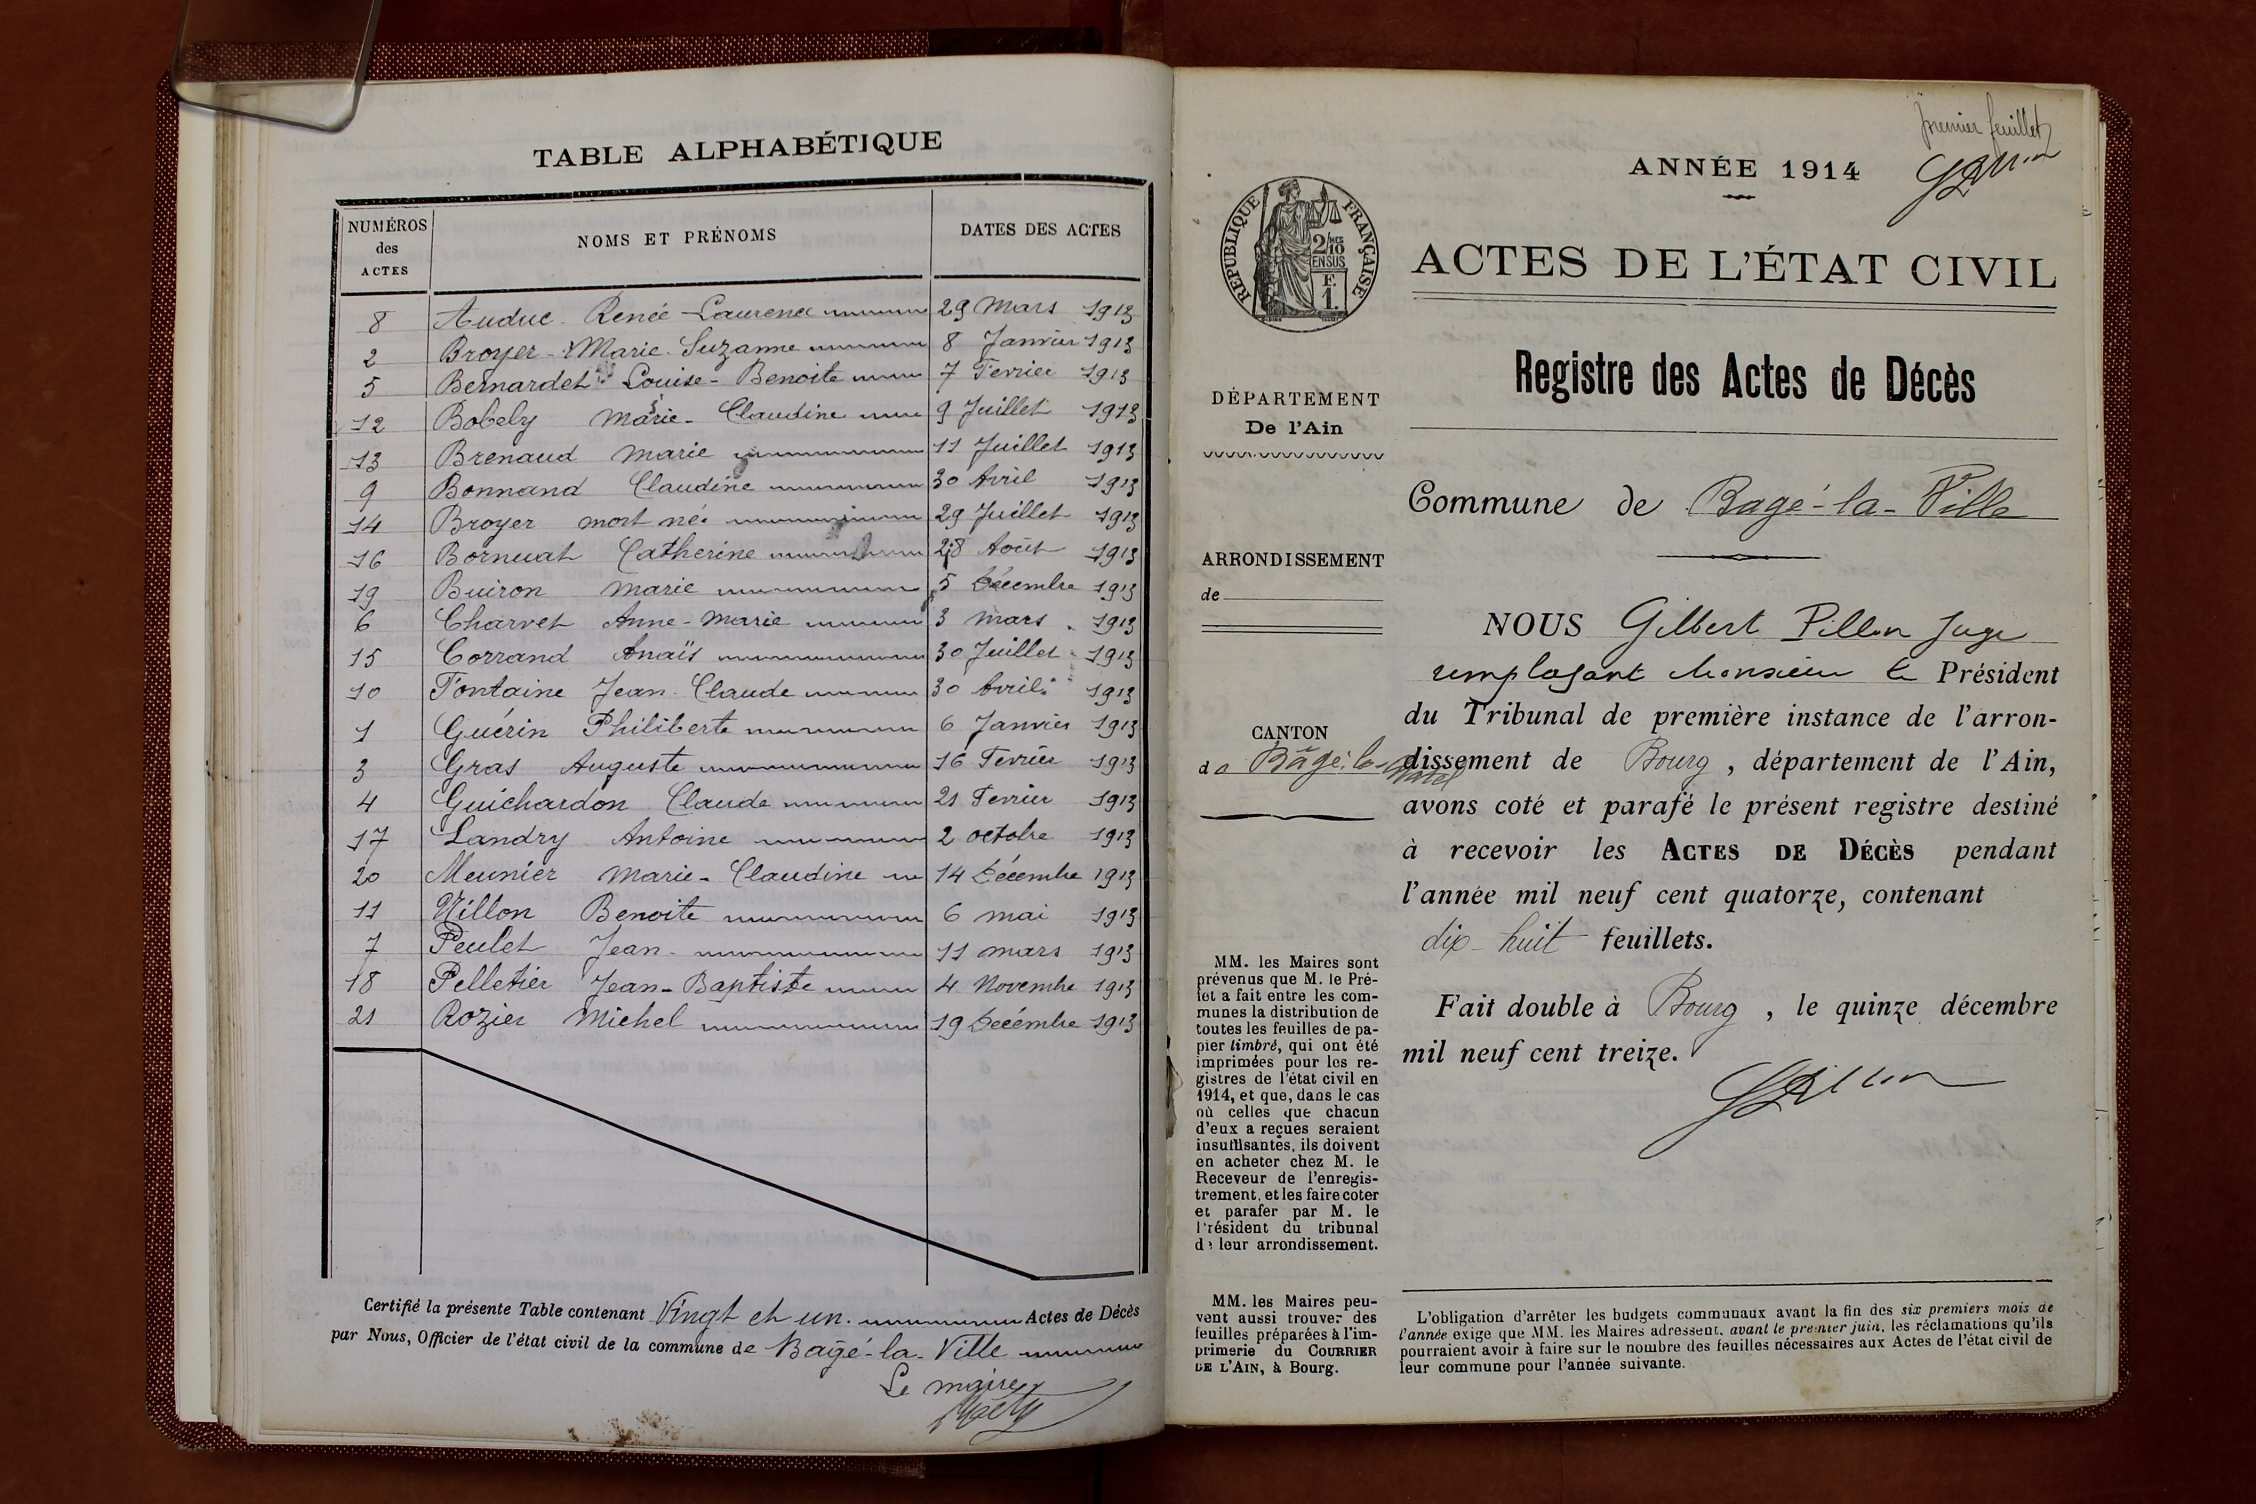 TABLE ALPHABÉTIQUE
NUMÉROS des ACTES | NOMS ET PRÉNOMS | DATES DES ACTES
8 Auduc Renée-Laurence 29 Mars 1913
2 Broyer Marie-Suzanne 8 Janvier 1913
5 Bernardet Louise-Benoite 7 Fevrier 1913
12 Bobely Marie-Claudine 9 Juillet 1913
13 Brenaud Marie 11 Juillet 1913
9 Bonnand Claudine 30 Avril 1913
14 Broyer mort né. 29 Juillet 1913
16 Bornuat Catherine 28 Août 1913
19 Buiron Marie 5 Décembre 1913
6 Charvet Anne-Marie 3 Mars 1913
15 Corrand Anaïs 30 Juillet 1913
10 Fontaine Jean-Claude 30 Avril 1913
1 Guérin Philiberte 6 Janvier 1913
3 Gras Auguste 16 Fevrier 1913
4 Guichardon Claude 21 Fevrier 1913
17 Landry Antoine 2 octobre 1913
20 Meunier Marie-Claudine 14 Décembre 1913
11 Nillon Benoite 6 mai 1913
7 Peulet Jean 11 mars 1913
18 Pelletier Jean-Baptiste 4 Novembre 1913
21 Rozier Michel 19 Decémbre 1913
Certifié la présente Table contenant Vingt et un. Actes de Décès
par Nous, Officier de l'état civil de la commune de Bagé-la-Ville
Le maire
premier feuillet
ANNÉE 1914
RÉPUBLIQUE FRANÇAISE
2/10 EN SUS
F. 1.
ACTES DE L'ÉTAT CIVIL
Registre des Actes de Décès
DÉPARTEMENT
De l'Ain
Commune de Bagé-la-Ville
ARRONDISSEMENT
de
CANTON
de Bâgé-le-Chatel
NOUS Gilbert Pillon Juge
remplaçant Monsieur le Président
du Tribunal de première instance de l'arron-
dissement de Bourg, département de l'Ain,
avons coté et parafé le présent registre destiné
à recevoir les ACTES DE DÉCÈS pendant
l'année mil neuf cent quatorze, contenant
dix-huit feuillets.
Fait double à Bourg, le quinze décembre
mil neuf cent treize.
MM. les Maires sont
prévenus que M. le Pré-
fet a fait entre les com-
munes la distribution de
toutes les feuilles de pa-
pier timbré, qui ont été
imprimées pour les re-
gistres de l'état civil en
1914, et que, dans le cas
où celles que chacun
d'eux a reçues seraient
insuffisantes, ils doivent
en acheter chez M. le
Receveur de l'enregis-
trement, et les faire coter
et parafer par M. le
Président du tribunal
de leur arrondissement.
MM. les Maires peu-
vent aussi trouver des
feuilles préparées à l'im-
primerie du COURRIER
DE L'AIN, à Bourg.
L'obligation d'arrêter les budgets communaux avant la fin des six premiers mois de
l'année exige que MM. les Maires adressent, avant le premier juin, les réclamations qu'ils
pourraient avoir à faire sur le nombre des feuilles nécessaires aux Actes de l'état civil de
leur commune pour l'année suivante.